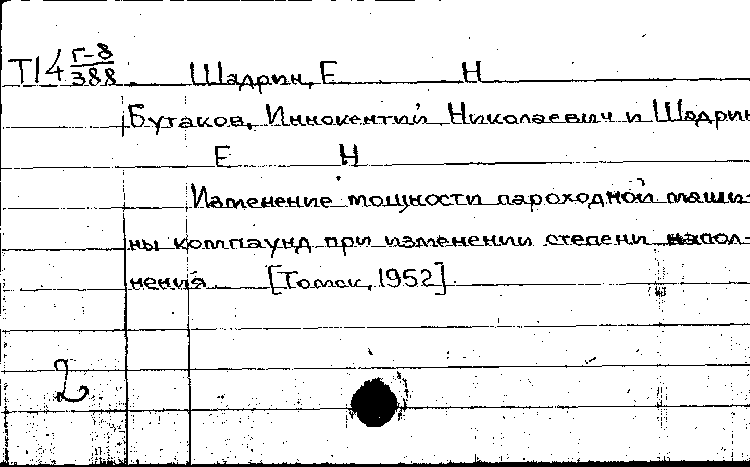 Т14 Г-8/388 Шадрин, Е Н
Бутаков, Иннокентий Николаевич и Шадрин
Е Н
Изменение мощности пароходной маши-
ны компаунд при изменении степени напол-
нения [Томск, 1952].
2